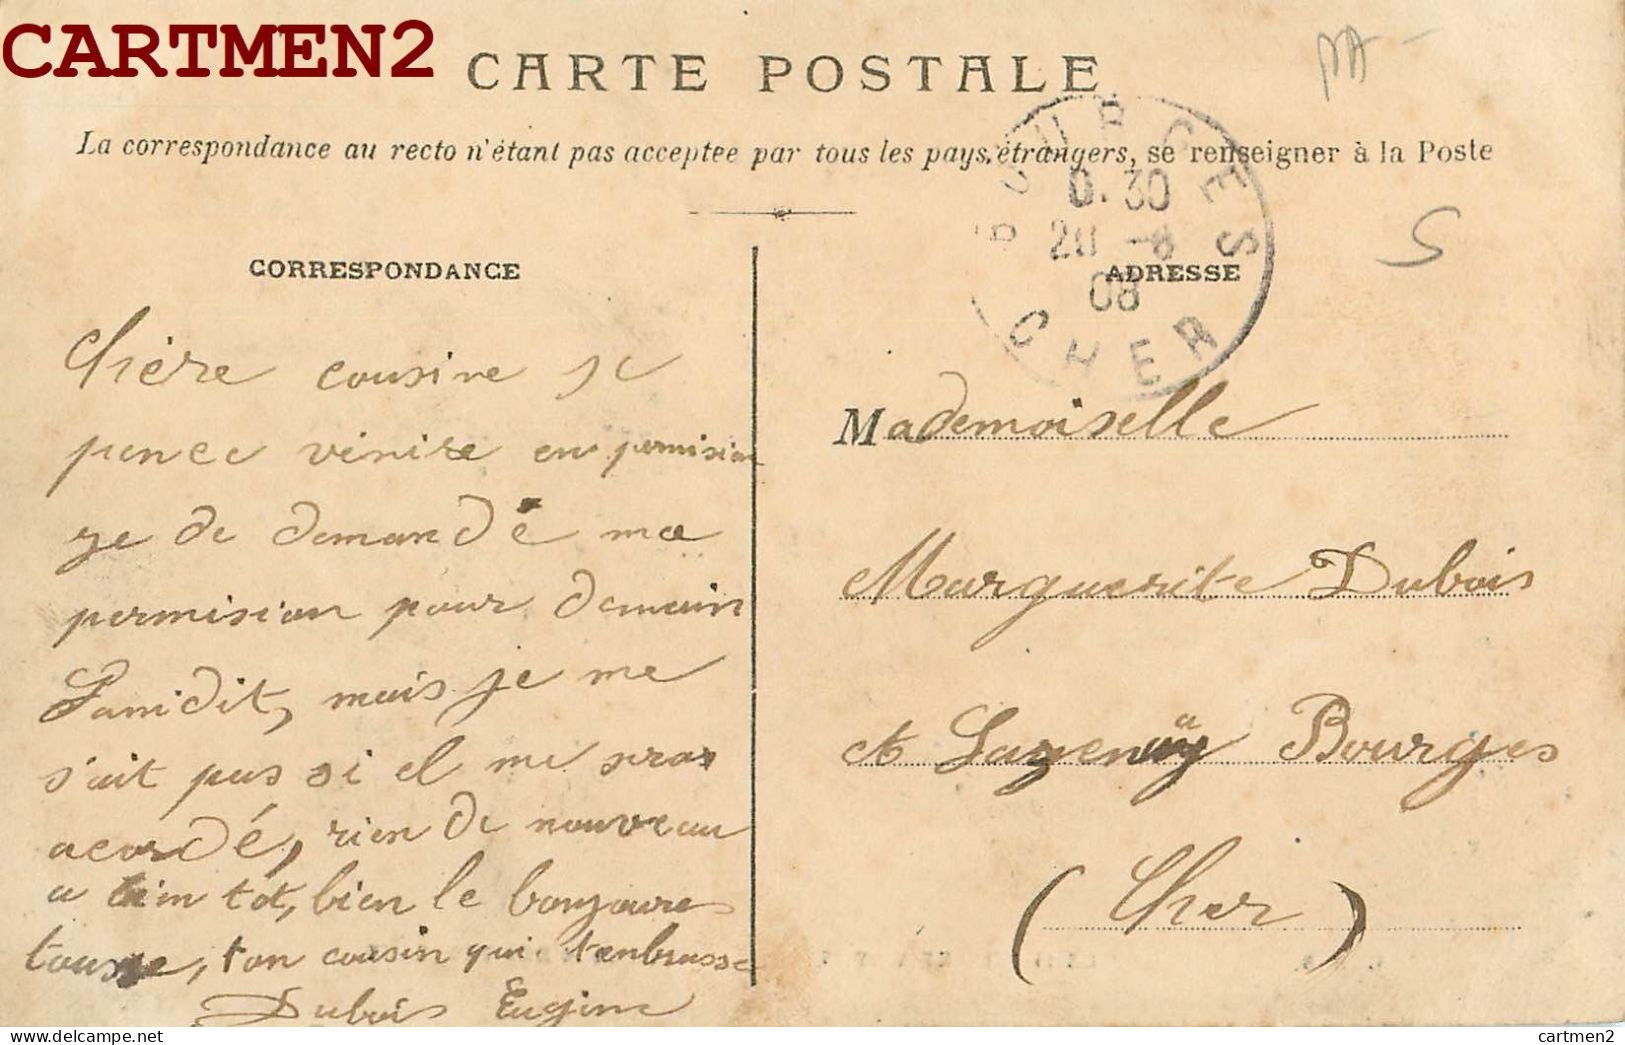 CARTMEN2
CARTE POSTALE
La correspondance au recto n'étant pas acceptée par tous les pays étrangers, se renseigner à la Poste
BOURGES
0.30
20 -8
08
CHER
CORRESPONDANCE
ADRESSE
Chère cousine je
pence venire en permision
ge de demandé ma
permision pour demain
Samidit, mais je me
s'ait pas si el me seras
acordé, rien de nouveau
a bin tot, bien le bonjoure
tousse, ton cousin qui t'enbrasse
Dubois Eugine
Mademoiselle
Marguerite Dubois
à Lazenay Bourges
(Cher)
cartmen2